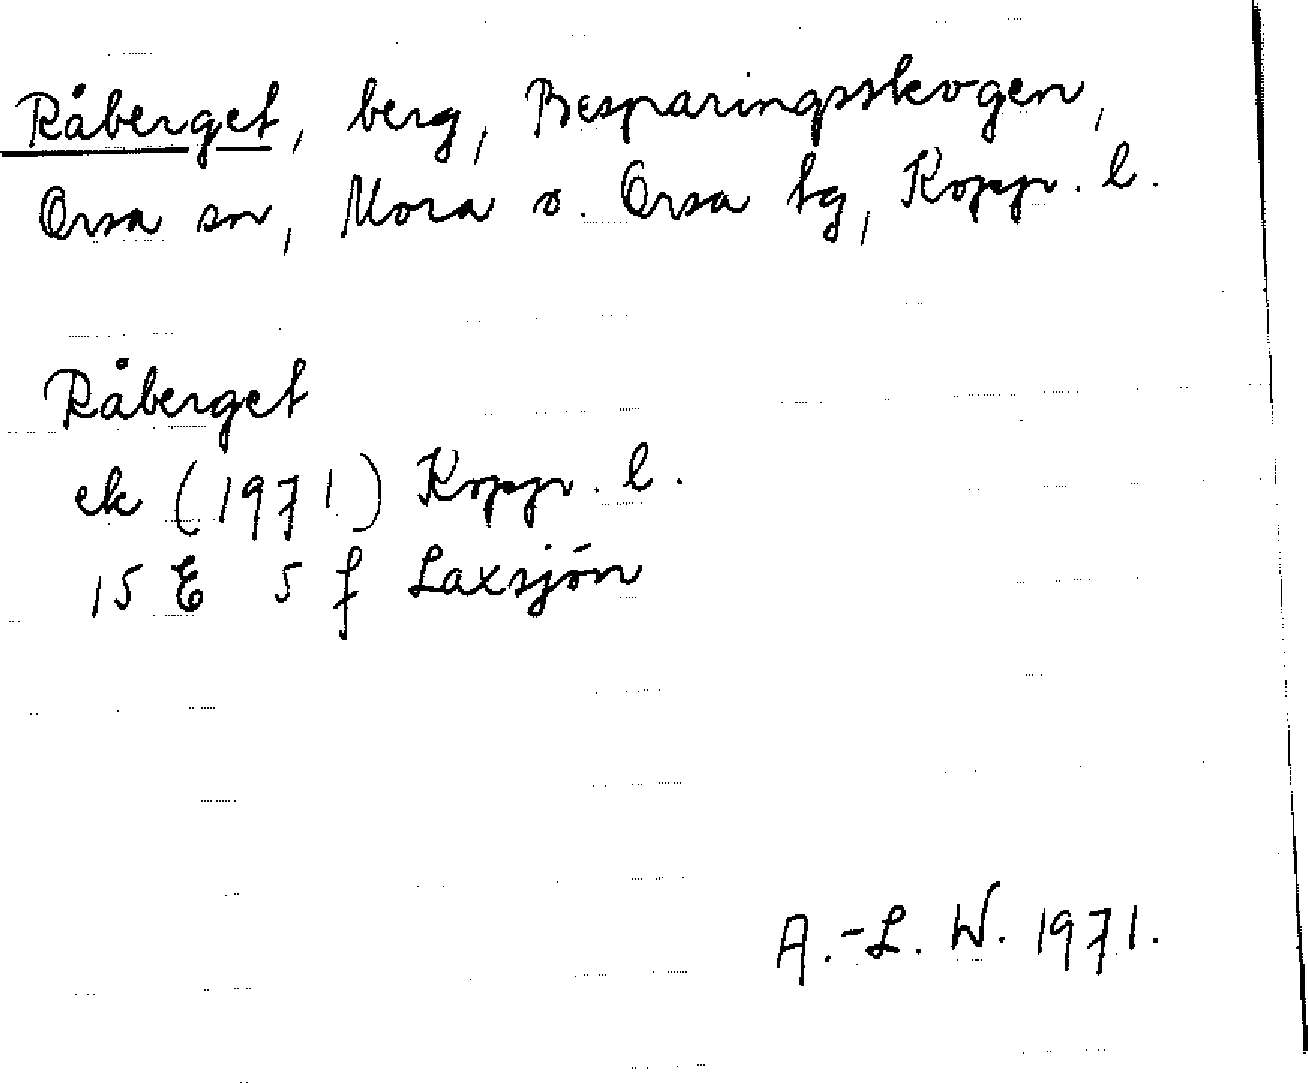 Råberget, berg, Besparingsskogen,
Orsa sn, Mora o. Orsa tg, Kopp. l.
Råberget
ek (1971) Kopp. l.
15 E 5 f Laxsjön
A.-L. W. 1971.